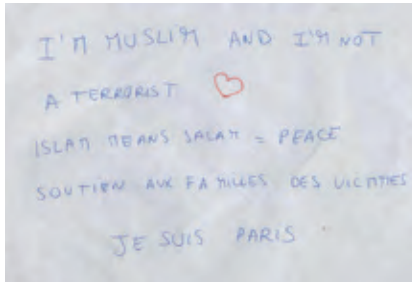 I'M MUSLIM AND I'M NOT
A TERRORIST
ISLAM MEANS SALAM = PEACE
SOUTIEN AUX FAMILLES DES VICTIMES
JE SUIS PARIS